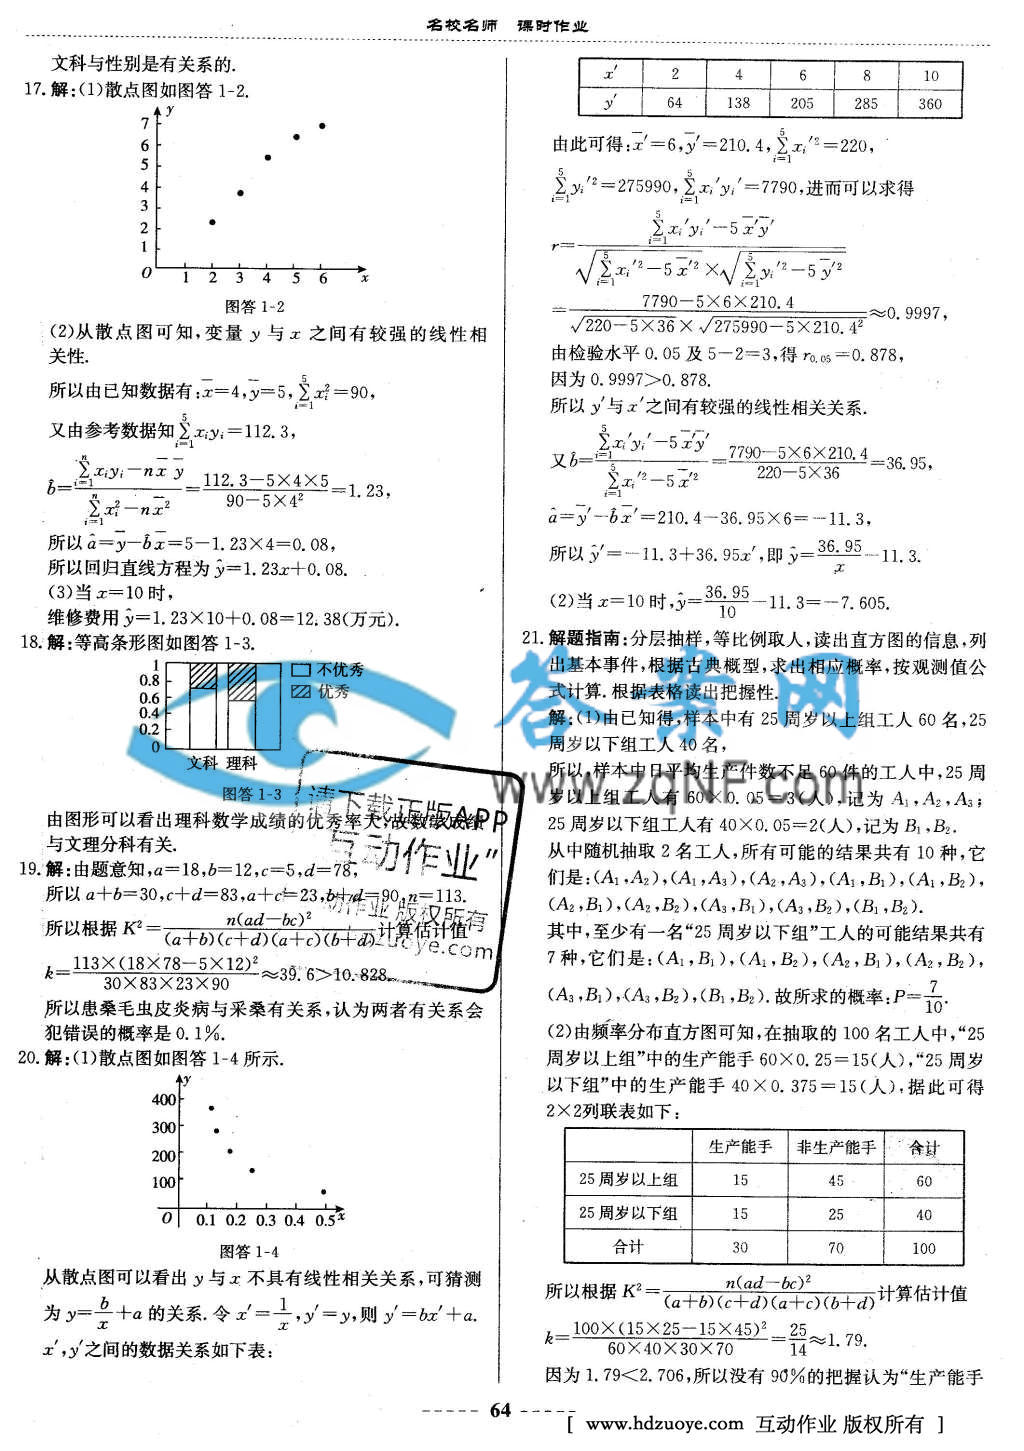 名校名师　课时作业
文科与性别是有关系的.
17.解:(1)散点图如图答1-2.
y
7
6
5
4
3
2
1
O 1 2 3 4 5 6 x
图答1-2
(2)从散点图可知,变量 y 与 x 之间有较强的线性相
关性.
所以由已知数据有:x̄=4,ȳ=5,∑(i=1→5)xᵢ²=90,
又由参考数据知∑(i=1→5)xᵢyᵢ=112.3,
b̂=(∑(i=1→n)xᵢyᵢ-nx̄ȳ)/(∑(i=1→n)xᵢ²-nx̄²)=(112.3-5×4×5)/(90-5×4²)=1.23,
所以â=ȳ-b̂x̄=5-1.23×4=0.08,
所以回归直线方程为ŷ=1.23x+0.08.
(3)当x=10时,
维修费用ŷ=1.23×10+0.08=12.38(万元).
18.解:等高条形图如图答1-3.
1
0.8
0.6
0.4
0.2
0
不优秀
优秀
文科 理科
图答1-3
由图形可以看出理科数学成绩的优秀率大,故数学成绩
与文理分科有关.
19.解:由题意知,a=18,b=12,c=5,d=78,
所以a+b=30,c+d=83,a+c=23,b+d=90,n=113.
所以根据K²=n(ad-bc)²/((a+b)(c+d)(a+c)(b+d))计算估计值
k=113×(18×78-5×12)²/(30×83×23×90)≈39.6>10.828.
所以患桑毛虫皮炎病与采桑有关系,认为两者有关系会
犯错误的概率是0.1%.
20.解:(1)散点图如图答1-4所示.
y
400
300
200
100
O 0.1 0.2 0.3 0.4 0.5 x
图答1-4
从散点图可以看出 y 与 x 不具有线性相关关系,可猜测
为y=b/x+a的关系.令x′=1/x,y′=y,则y′=bx′+a.
x′,y′之间的数据关系如下表:
x′ 2 4 6 8 10
y′ 64 138 205 285 360
由此可得:x̄′=6,ȳ′=210.4,∑(i=1→5)xᵢ′²=220,
∑(i=1→5)yᵢ′²=275990,∑(i=1→5)xᵢ′yᵢ′=7790,进而可以求得
r=(∑(i=1→5)xᵢ′yᵢ′-5x̄′ȳ′)/(√(∑(i=1→5)xᵢ′²-5x̄′²)×√(∑(i=1→5)yᵢ′²-5ȳ′²))
=(7790-5×6×210.4)/(√(220-5×36)×√(275990-5×210.4²))≈0.9997,
由检验水平0.05及5-2=3,得r₀.₀₅=0.878,
因为0.9997>0.878.
所以y′与x′之间有较强的线性相关关系.
又b̂=(∑(i=1→5)xᵢ′yᵢ′-5x̄′ȳ′)/(∑(i=1→5)xᵢ′²-5x̄′²)=(7790-5×6×210.4)/(220-5×36)=36.95,
â=ȳ′-b̂x̄′=210.4-36.95×6=-11.3,
所以ŷ′=-11.3+36.95x′,即ŷ=36.95/x-11.3.
(2)当x=10时,ŷ=36.95/10-11.3=-7.605.
21.解题指南:分层抽样,等比例取人,读出直方图的信息,列
出基本事件,根据古典概型,求出相应概率,按观测值公
式计算.根据表格读出把握性.
解:(1)由已知得,样本中有25周岁以上组工人60名,25
周岁以下组工人40名,
所以,样本中日平均生产件数不足60件的工人中,25周
岁以上组工人有60×0.05=3(人),记为A₁,A₂,A₃;
25周岁以下组工人有40×0.05=2(人),记为B₁,B₂.
从中随机抽取2名工人,所有可能的结果共有10种,它
们是:(A₁,A₂),(A₁,A₃),(A₂,A₃),(A₁,B₁),(A₁,B₂),
(A₂,B₁),(A₂,B₂),(A₃,B₁),(A₃,B₂),(B₁,B₂).
其中,至少有一名“25周岁以下组”工人的可能结果共有
7种,它们是:(A₁,B₁),(A₁,B₂),(A₂,B₁),(A₂,B₂),
(A₃,B₁),(A₃,B₂),(B₁,B₂).故所求的概率:P=7/10.
(2)由频率分布直方图可知,在抽取的100名工人中,“25
周岁以上组”中的生产能手60×0.25=15(人),“25周岁
以下组”中的生产能手40×0.375=15(人),据此可得
2×2列联表如下:
生产能手 非生产能手 合计
25周岁以上组 15 45 60
25周岁以下组 15 25 40
合计 30 70 100
所以根据K²=n(ad-bc)²/((a+b)(c+d)(a+c)(b+d))计算估计值
k=100×(15×25-15×45)²/(60×40×30×70)=25/14≈1.79.
因为1.79<2.706,所以没有90%的把握认为“生产能手
答案网
www.zqNF.com
请下载正版APP
互动作业”
64
[ www.hdzuoye.com 互动作业 版权所有 ]